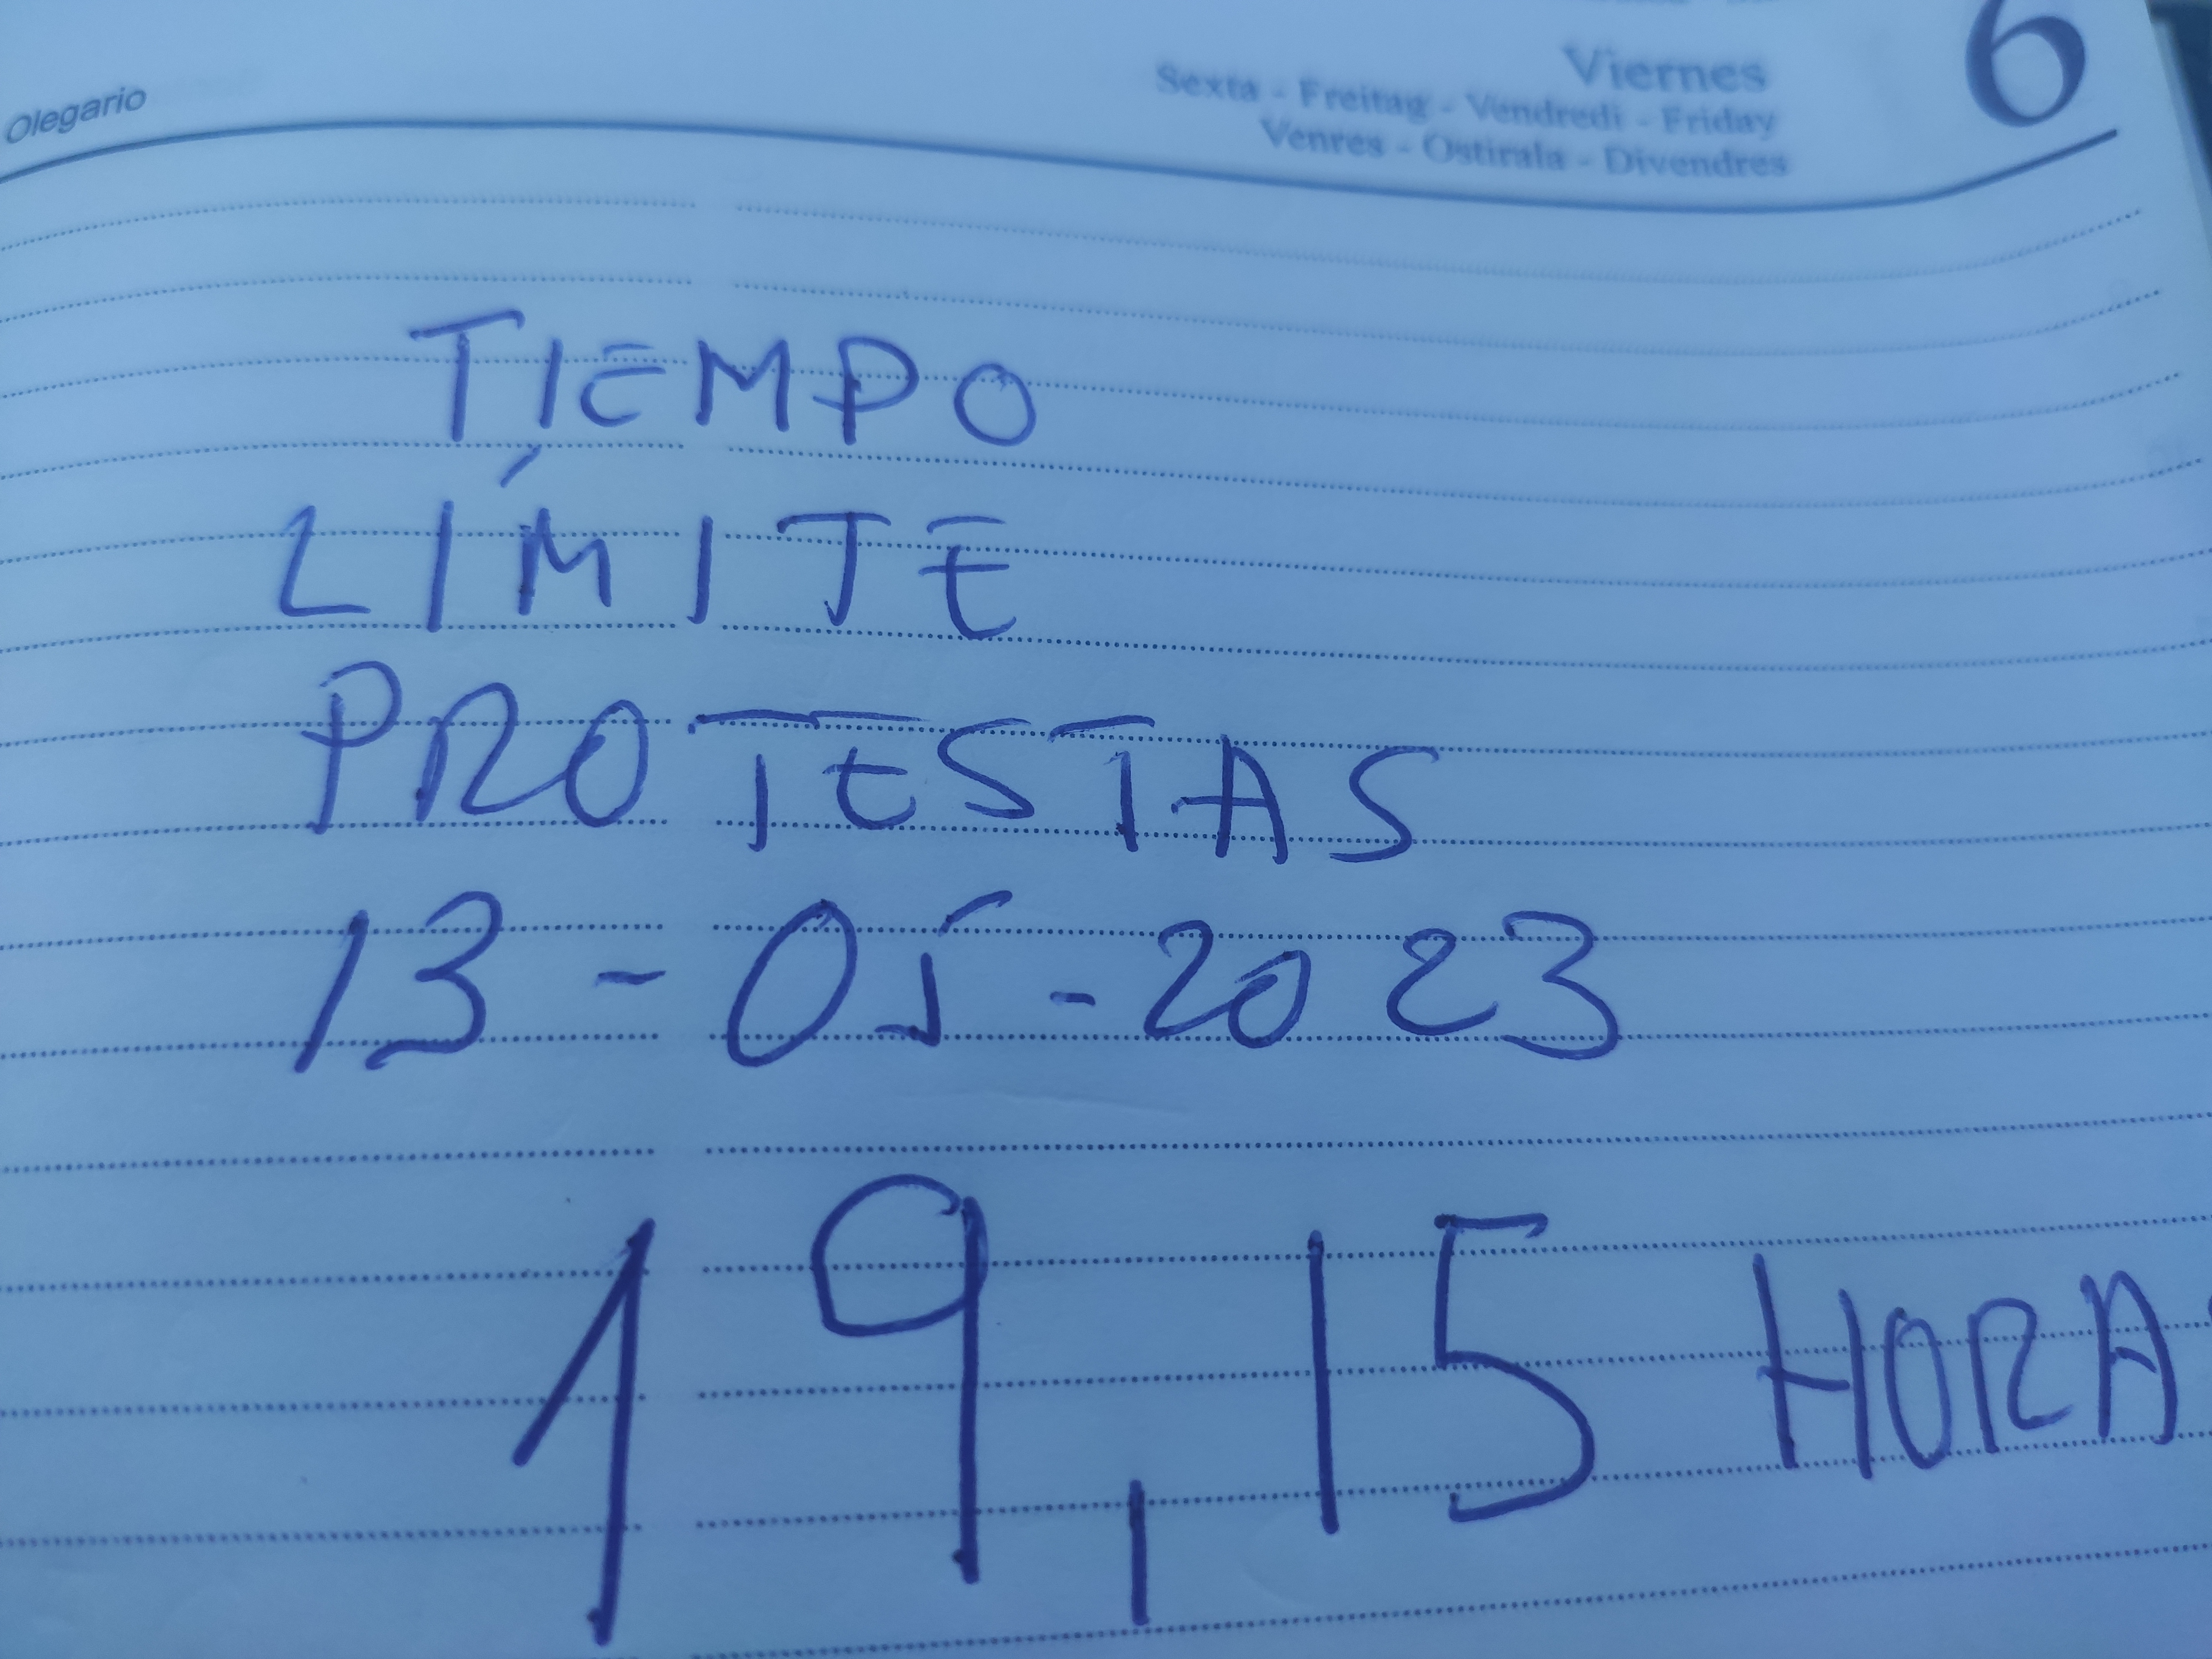 Olegario
Viernes 6
Sexta - Freitag - Vendredi - Friday
Venres - Ostirala - Divendres
TIEMPO
LÍMITE
PROTESTAS
13-05-2023
19,15 HORA